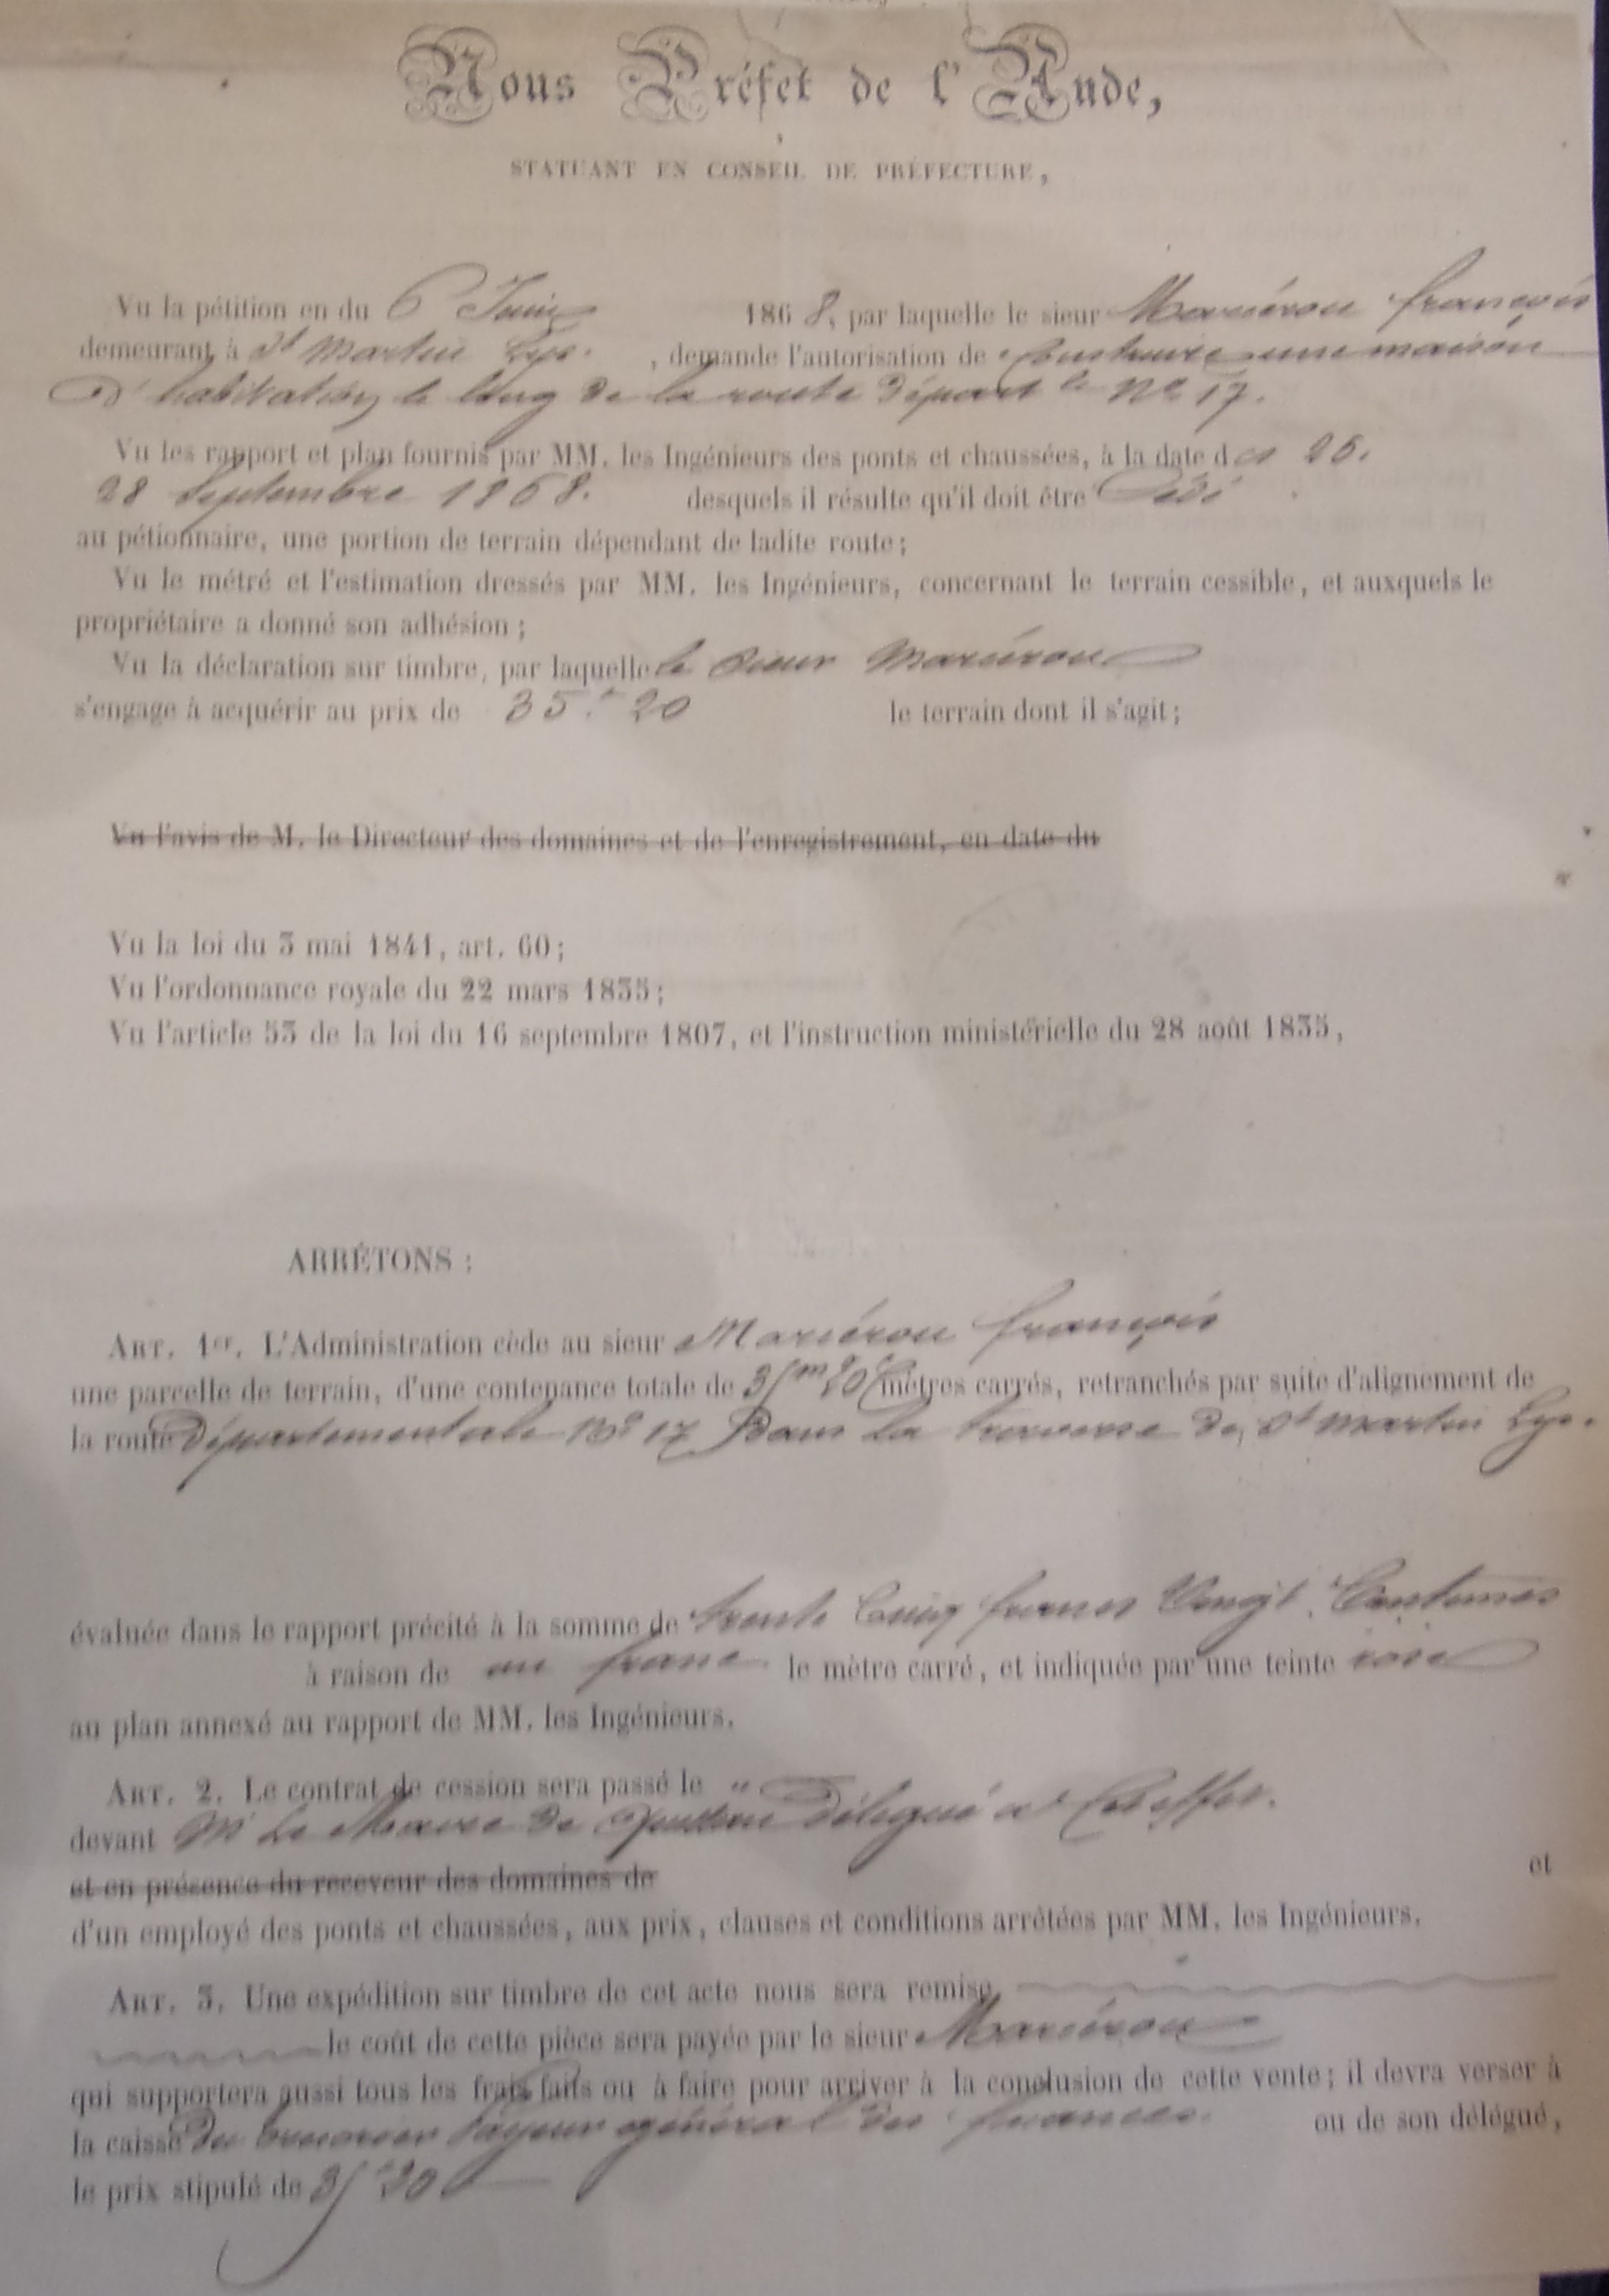 Nous Préfet de l'Aude,
STATUANT EN CONSEIL DE PRÉFECTURE,
Vu la pétition en du 6 Juin 1868, par laquelle le sieur Mariérou françois
demeurant à St Martin Lys. , demande l'autorisation de Construire une maison
D'habitation le long de la route départle No 17.
Vu les rapport et plan fournis par MM. les Ingénieurs des ponts et chaussées, à la date des 26.
28 Septembre 1868. desquels il résulte qu'il doit être Cédé
au pétionnaire, une portion de terrain dépendant de ladite route;
Vu le métré et l'estimation dressés par MM. les Ingénieurs, concernant le terrain cessible, et auxquels le
propriétaire a donné son adhésion;
Vu la déclaration sur timbre, par laquelle le Sieur Mariérou
s'engage à acquérir au prix de 35.f 20 le terrain dont il s'agit;
Vu l'avis de M. le Directeur des domaines et de l'enregistrement, en date du
Vu la loi du 3 mai 1841, art. 60;
Vu l'ordonnance royale du 22 mars 1835;
Vu l'article 53 de la loi du 16 septembre 1807, et l'instruction ministérielle du 28 août 1835,
ARRÊTONS :
ART. 1er. L'Administration cède au sieur Mariérou françois
une parcelle de terrain, d'une contenance totale de 35m 20c mètres carrés, retranchés par suite d'alignement de
la route Départementale No 17 Dans la traverse de St Martin Lys.
évaluée dans le rapport précité à la somme de trente Cinq francs Vingt Centimes
à raison de un franc le mètre carré, et indiquée par une teinte rose
au plan annexé au rapport de MM. les Ingénieurs.
ART. 2. Le contrat de cession sera passé le "
devant Mr Le Maire de Quillan Délégué à Cet effet.
et en présence du receveur des domaines de et
d'un employé des ponts et chaussées, aux prix, clauses et conditions arrêtées par MM. les Ingénieurs.
ART. 3. Une expédition sur timbre de cet acte nous sera remise
le coût de cette pièce sera payée par le sieur Mariérou
qui supportera aussi tous les frais faits ou à faire pour arriver à la conclusion de cette vente; il devra verser à
la caisse du trésorier payeur général des finances. ou de son délégué,
le prix stipulé de 35f 20